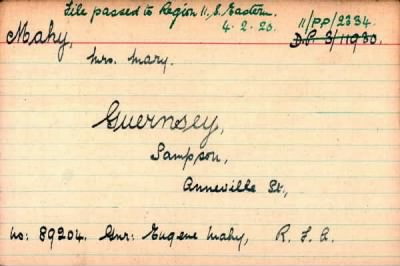 File passed to Region 11. S. Eastern. 11/PP/2334.
4.2.20.
Mahy, D.P. 3/11930.
Mrs. Mary.
Guernsey,
Sampson,
Anneville St.,
No: 89204. Gnr: Eugene Mahy, R. F. A.